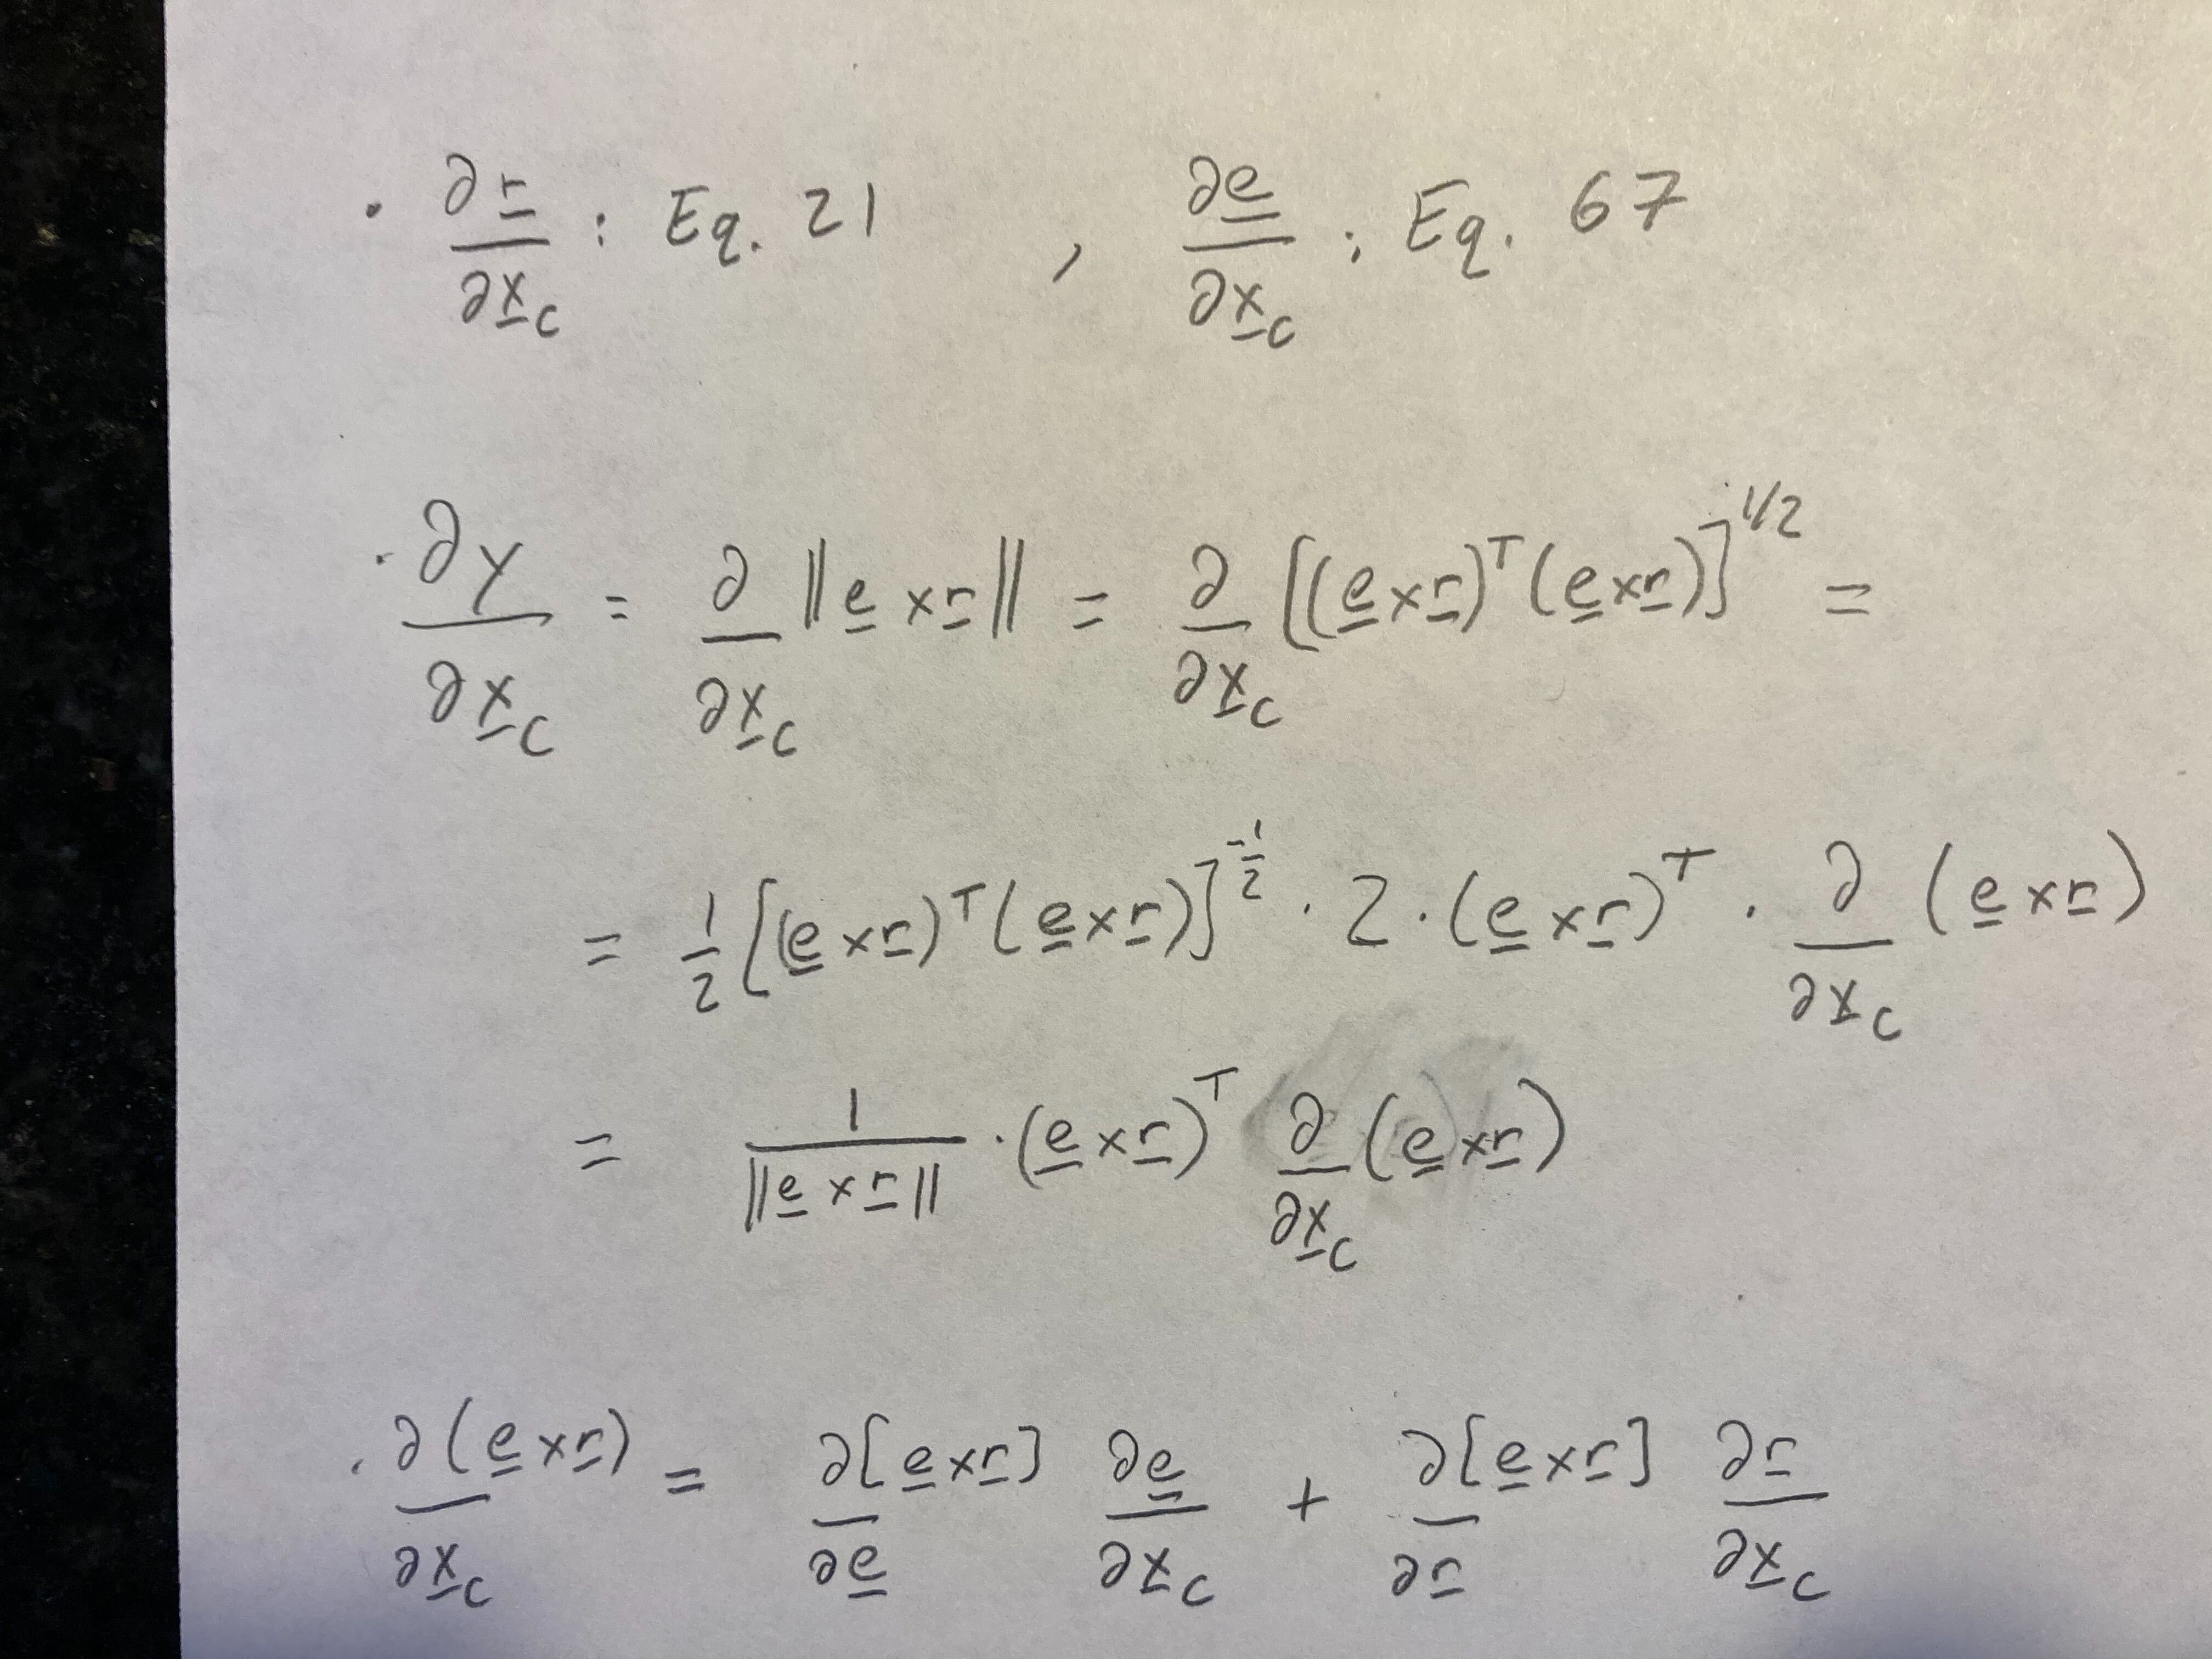 · ∂r̲/∂x̲_c : Eq. 21 , ∂e̲/∂x̲_c : Eq. 67
· ∂y/∂x̲_c = ∂/∂x̲_c ‖e̲ × r̲‖ = ∂/∂x̲_c [(e̲ × r̲)^T (e̲ × r̲)]^{1/2} =
= 1/2 [(e̲ × r̲)^T (e̲ × r̲)]^{-1/2} · 2 · (e̲ × r̲)^T · ∂/∂x̲_c (e̲ × r̲)
= 1/‖e̲ × r̲‖ · (e̲ × r̲)^T ∂/∂x̲_c (e̲ × r̲)
· ∂(e̲ × r̲)/∂x̲_c = ∂[e̲ × r̲]/∂e̲ ∂e̲/∂x̲_c + ∂[e̲ × r̲]/∂r̲ ∂r̲/∂x̲_c